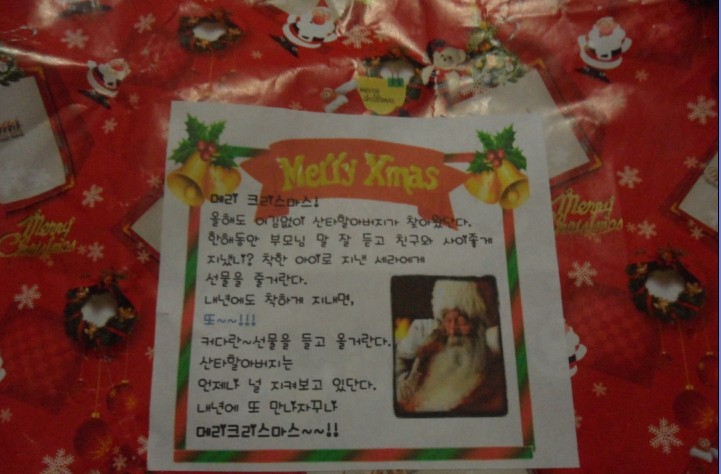 merry christmas
Merry Xmas
메리 크리스마스!
올해도 어김없이 산타할아버지가 찾아왔단다.
한해동안 부모님 말 잘 듣고 친구와 사이좋게
지냈니? 착한 아이로 지낸 세라에게
선물을 줄거란다.
내년에도 착하게 지내면,
또~~!!!
커다란~선물을 들고 올거란다.
산타할아버지는
언제나 널 지켜보고 있단다.
내년에 또 만나자꾸나
메리크리스마스~~!!
Merry Christmas
Merry Christmas